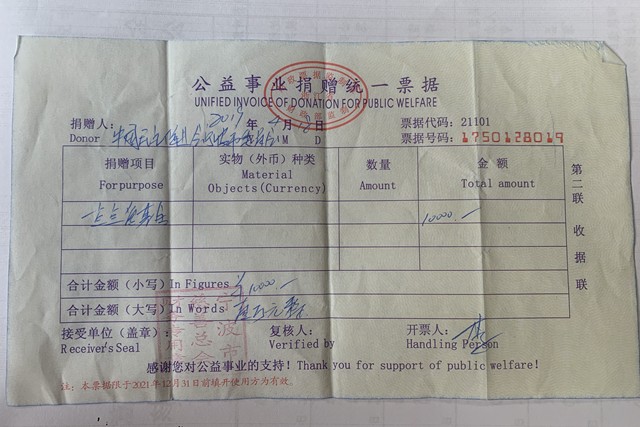 公益事业捐赠统一票据
UNIFIED INVOICE OF DONATION FOR PUBLIC WELFARE
捐赠人： 2019 年 4 月 日 票据代码：21101
Donor M D 票据号码：1750128019
捐赠项目 实物（外币）种类 数量 金额
For purpose Material Objects(Currency) Amount Total amount
10000.—
合计金额（小写）In Figures ¥10000.—
合计金额（大写）In Words 壹万元整
接受单位（盖章）： 复核人： 开票人：
Receiver's Seal Verified by Handling Person
感谢您对公益事业的支持！Thank you for support of public welfare!
注：本票据限于2021年12月31日前填开使用方为有效。
第二联 收据联